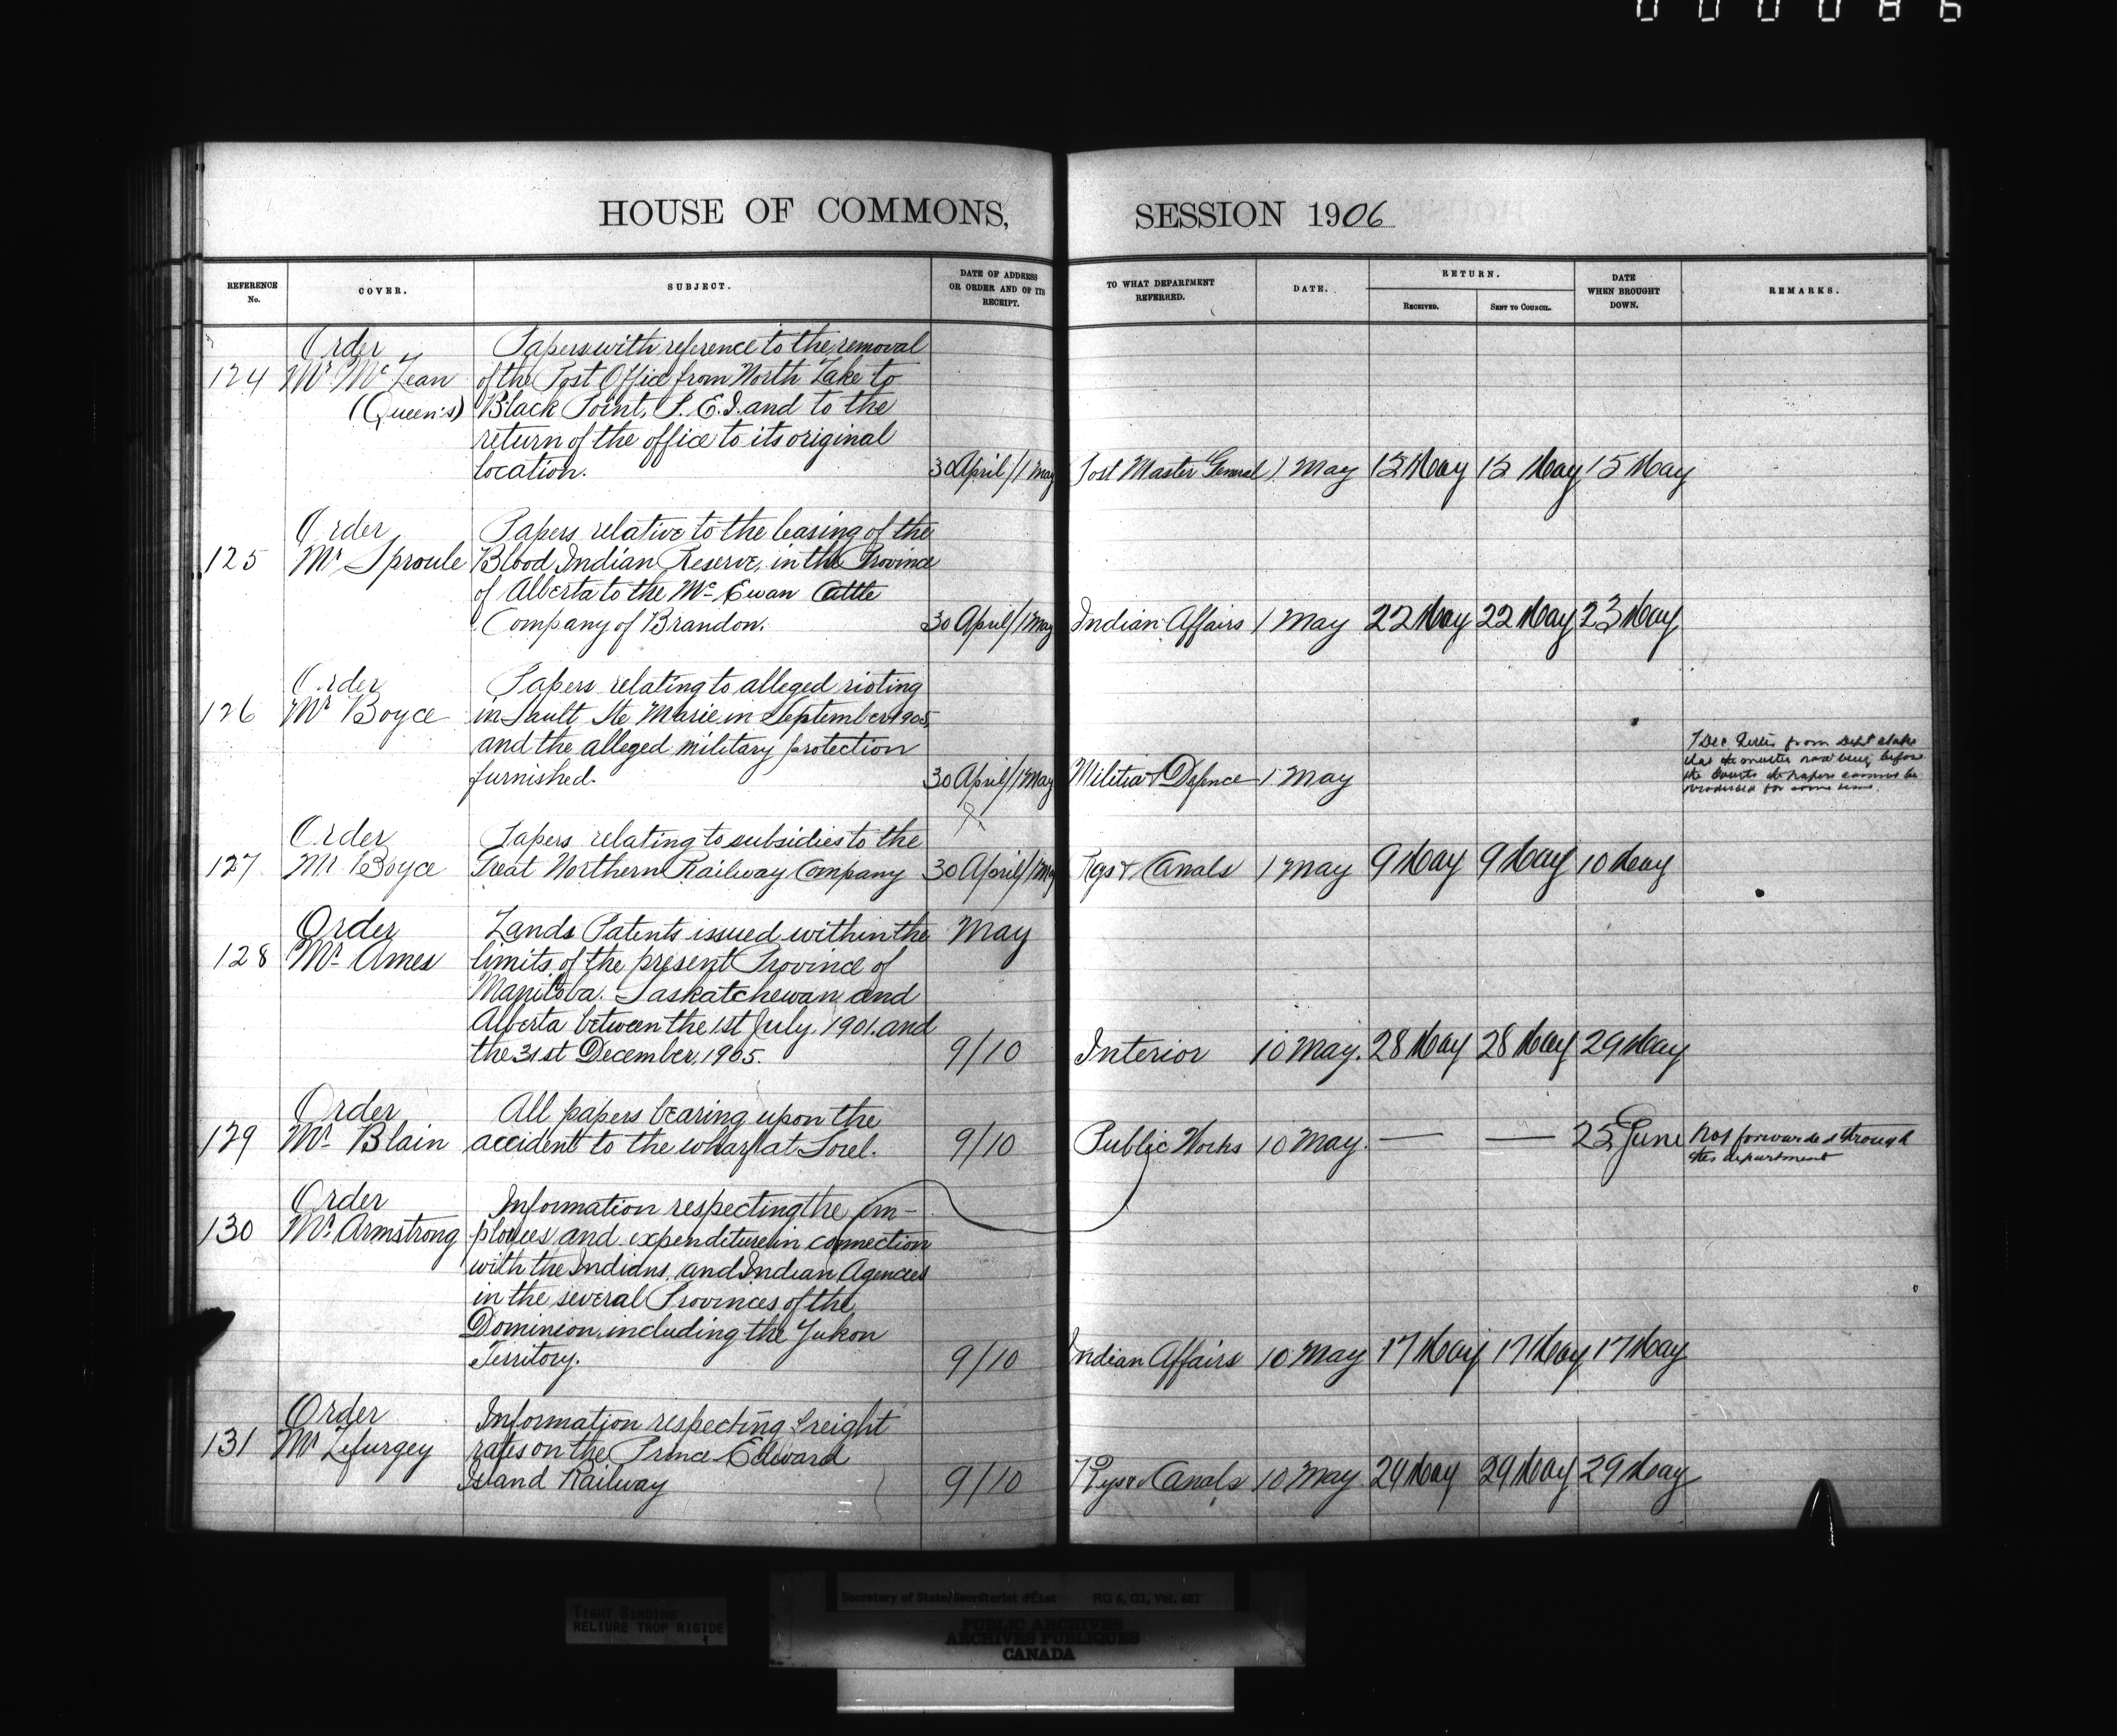 000086
HOUSE OF COMMONS,
SESSION 1906
REFERENCE No.
COVER.
SUBJECT.
DATE OF ADDRESS OR ORDER AND OF ITS RECEIPT.
TO WHAT DEPARTMENT REFERRED.
DATE.
RETURN.
RECEIVED.
SENT TO COUNCIL.
DATE WHEN BROUGHT DOWN.
REMARKS.
Order
Papers with reference to the removal
124 Mr. McLean of the Post Office from North Lake to
(Queen's) Black Point, P.E.I. and to the
return of the office to its original
location. 30 April/1 May Post Master General 1 May 15 May 15 May 15 May
Order
Papers relative to the leasing of the
125 Mr. Sproule Blood Indian Reserve, in the Province
of Alberta to the McEwan Cattle
Company of Brandon. 30 April/1 May Indian Affairs 1 May 22 May 22 May 23 May
Order
Papers relating to alleged rioting
126 Mr. Boyce in Sault Ste Marie in September 1905,
and the alleged military protection
furnished. 30 April/1 May Militia & Defence 1 May
7 Dec. from Dept states
that the matter now being before
the Courts the papers cannot be
produced for some time.
Order
Papers relating to subsidies to the
127 Mr. Boyce Great Northern Railway Company 30 April/1 May Rys & Canals 1 May 9 May 9 May 10 May
Order
Lands Patents issued within the May
128 Mr. Ames limits of the present Province of
Manitoba. Saskatchewan and
Alberta between the 1st July, 1901. and
the 31st December, 1905. 9/10 Interior 10 May. 28 May 28 May 29 May
Order
All papers bearing upon the
129 Mr. Blain accident to the wharf at Sorel. 9/10 Public Works 10 May. — — 25 June Not forwarded through
this department
Order
Information respecting the em-
130 Mr. Armstrong ployees and expenditure in connection
with the Indians, and Indian Agencies
in the several Provinces of the
Dominion, including the Yukon
Territory. 9/10 Indian Affairs 10 May 17 May 17 May 17 May
Order
Information respecting freight
131 Mr Lefurgey rates on the Prince Edward
Island Railway 9/10 Rys & Canals 10 May 29 May 29 May 29 May
Secretary of State/Secrétariat d'État RG 6, G1, Vol. 681
TIGHT BINDING
RELIURE TROP RIGIDE
PUBLIC ARCHIVES
ARCHIVES PUBLIQUES
CANADA